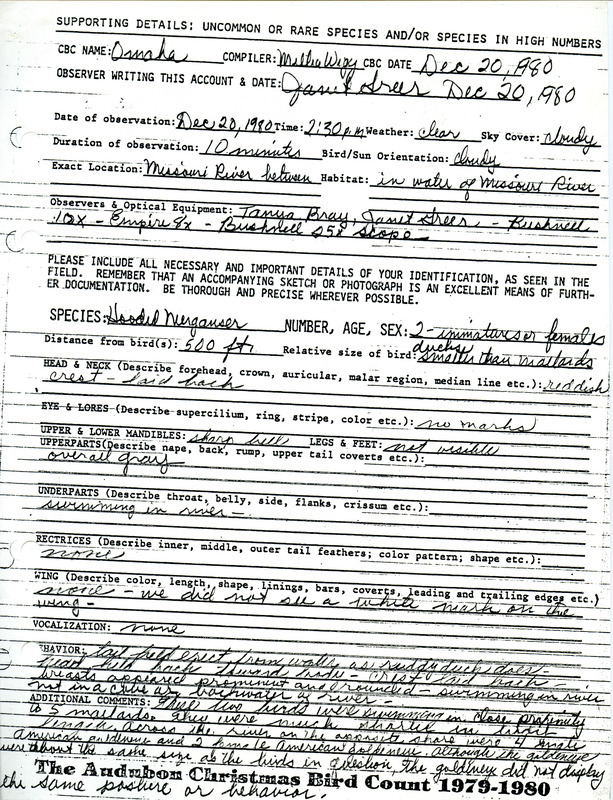 SUPPORTING DETAILS: UNCOMMON OR RARE SPECIES AND/OR SPECIES IN HIGH NUMBERS
CBC NAME: Omaha COMPILER: CBC DATE Dec 20, 1980
OBSERVER WRITING THIS ACCOUNT & DATE: Janet Greer Dec 20, 1980
Date of observation: Dec 20, 1980 Time: 2:30 p.m Weather: clear Sky Cover: cloudy
Duration of observation: 10 minutes Bird/Sun Orientation: cloudy
Exact Location: Missouri River between Habitat: in water of Missouri River
Observers & Optical Equipment: Tanya Bray, Janet Greer - Bushnell
10x - Empire 8x - Bushnell 25x scope
PLEASE INCLUDE ALL NECESSARY AND IMPORTANT DETAILS OF YOUR IDENTIFICATION, AS SEEN IN THE
FIELD. REMEMBER THAT AN ACCOMPANYING SKETCH OR PHOTOGRAPH IS AN EXCELLENT MEANS OF FURTH-
ER DOCUMENTATION. BE THOROUGH AND PRECISE WHEREVER POSSIBLE.
SPECIES: Hooded Merganser NUMBER, AGE, SEX: 2-immatures or females
ducks
Distance from bird(s): 500 ft. Relative size of bird: smaller than mallards
HEAD & NECK (Describe forehead, crown, auricular, malar region, median line etc.): reddish
crest - laid back
EYE & LORES (Describe supercilium, ring, stripe, color etc.): no marks
UPPER & LOWER MANDIBLES: sharp bill LEGS & FEET: not visible
UPPERPARTS(Describe nape, back, rump, upper tail coverts etc.):
overall gray
UNDERPARTS (Describe throat, belly, side, flanks, crissum etc.):
swimming in river -
RECTRICES (Describe inner, middle, outer tail feathers; color pattern; shape etc.):
none
WING (Describe color, length, shape, linings, bars, coverts, leading and trailing edges etc.)
none - we did not see a white mark on the
wing -
VOCALIZATION: none
BEHAVIOR: tail held erect from water as ruddy duck does -
head held back toward body - crest laid back -
breasts appeared prominent and rounded - swimming in river
not in a cove or backwater of river -
ADDITIONAL COMMENTS: These two birds were swimming in close proximity
to 5 mallards. They were much
across the river on the opposite shore were 4 male
American goldeneye and 2 female American goldeneye, although the goldeneye
were about the same size as the birds in question, the goldeneye did not display
The Audubon Christmas Bird Count 1979-1980
the same posture or behavior.